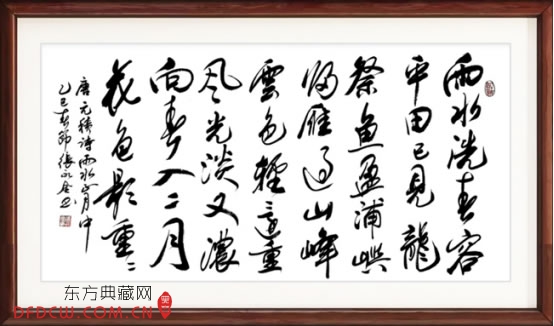 雨水洗春容
平田已見龍
祭魚盈浦嶼
歸雁過山峰
雲色輕還重
風光淡又濃
向春入二月
花色影重〻
唐元稹詩雨水正月中
乙巳春節張
东方典藏网
DFDCW.COM.CN